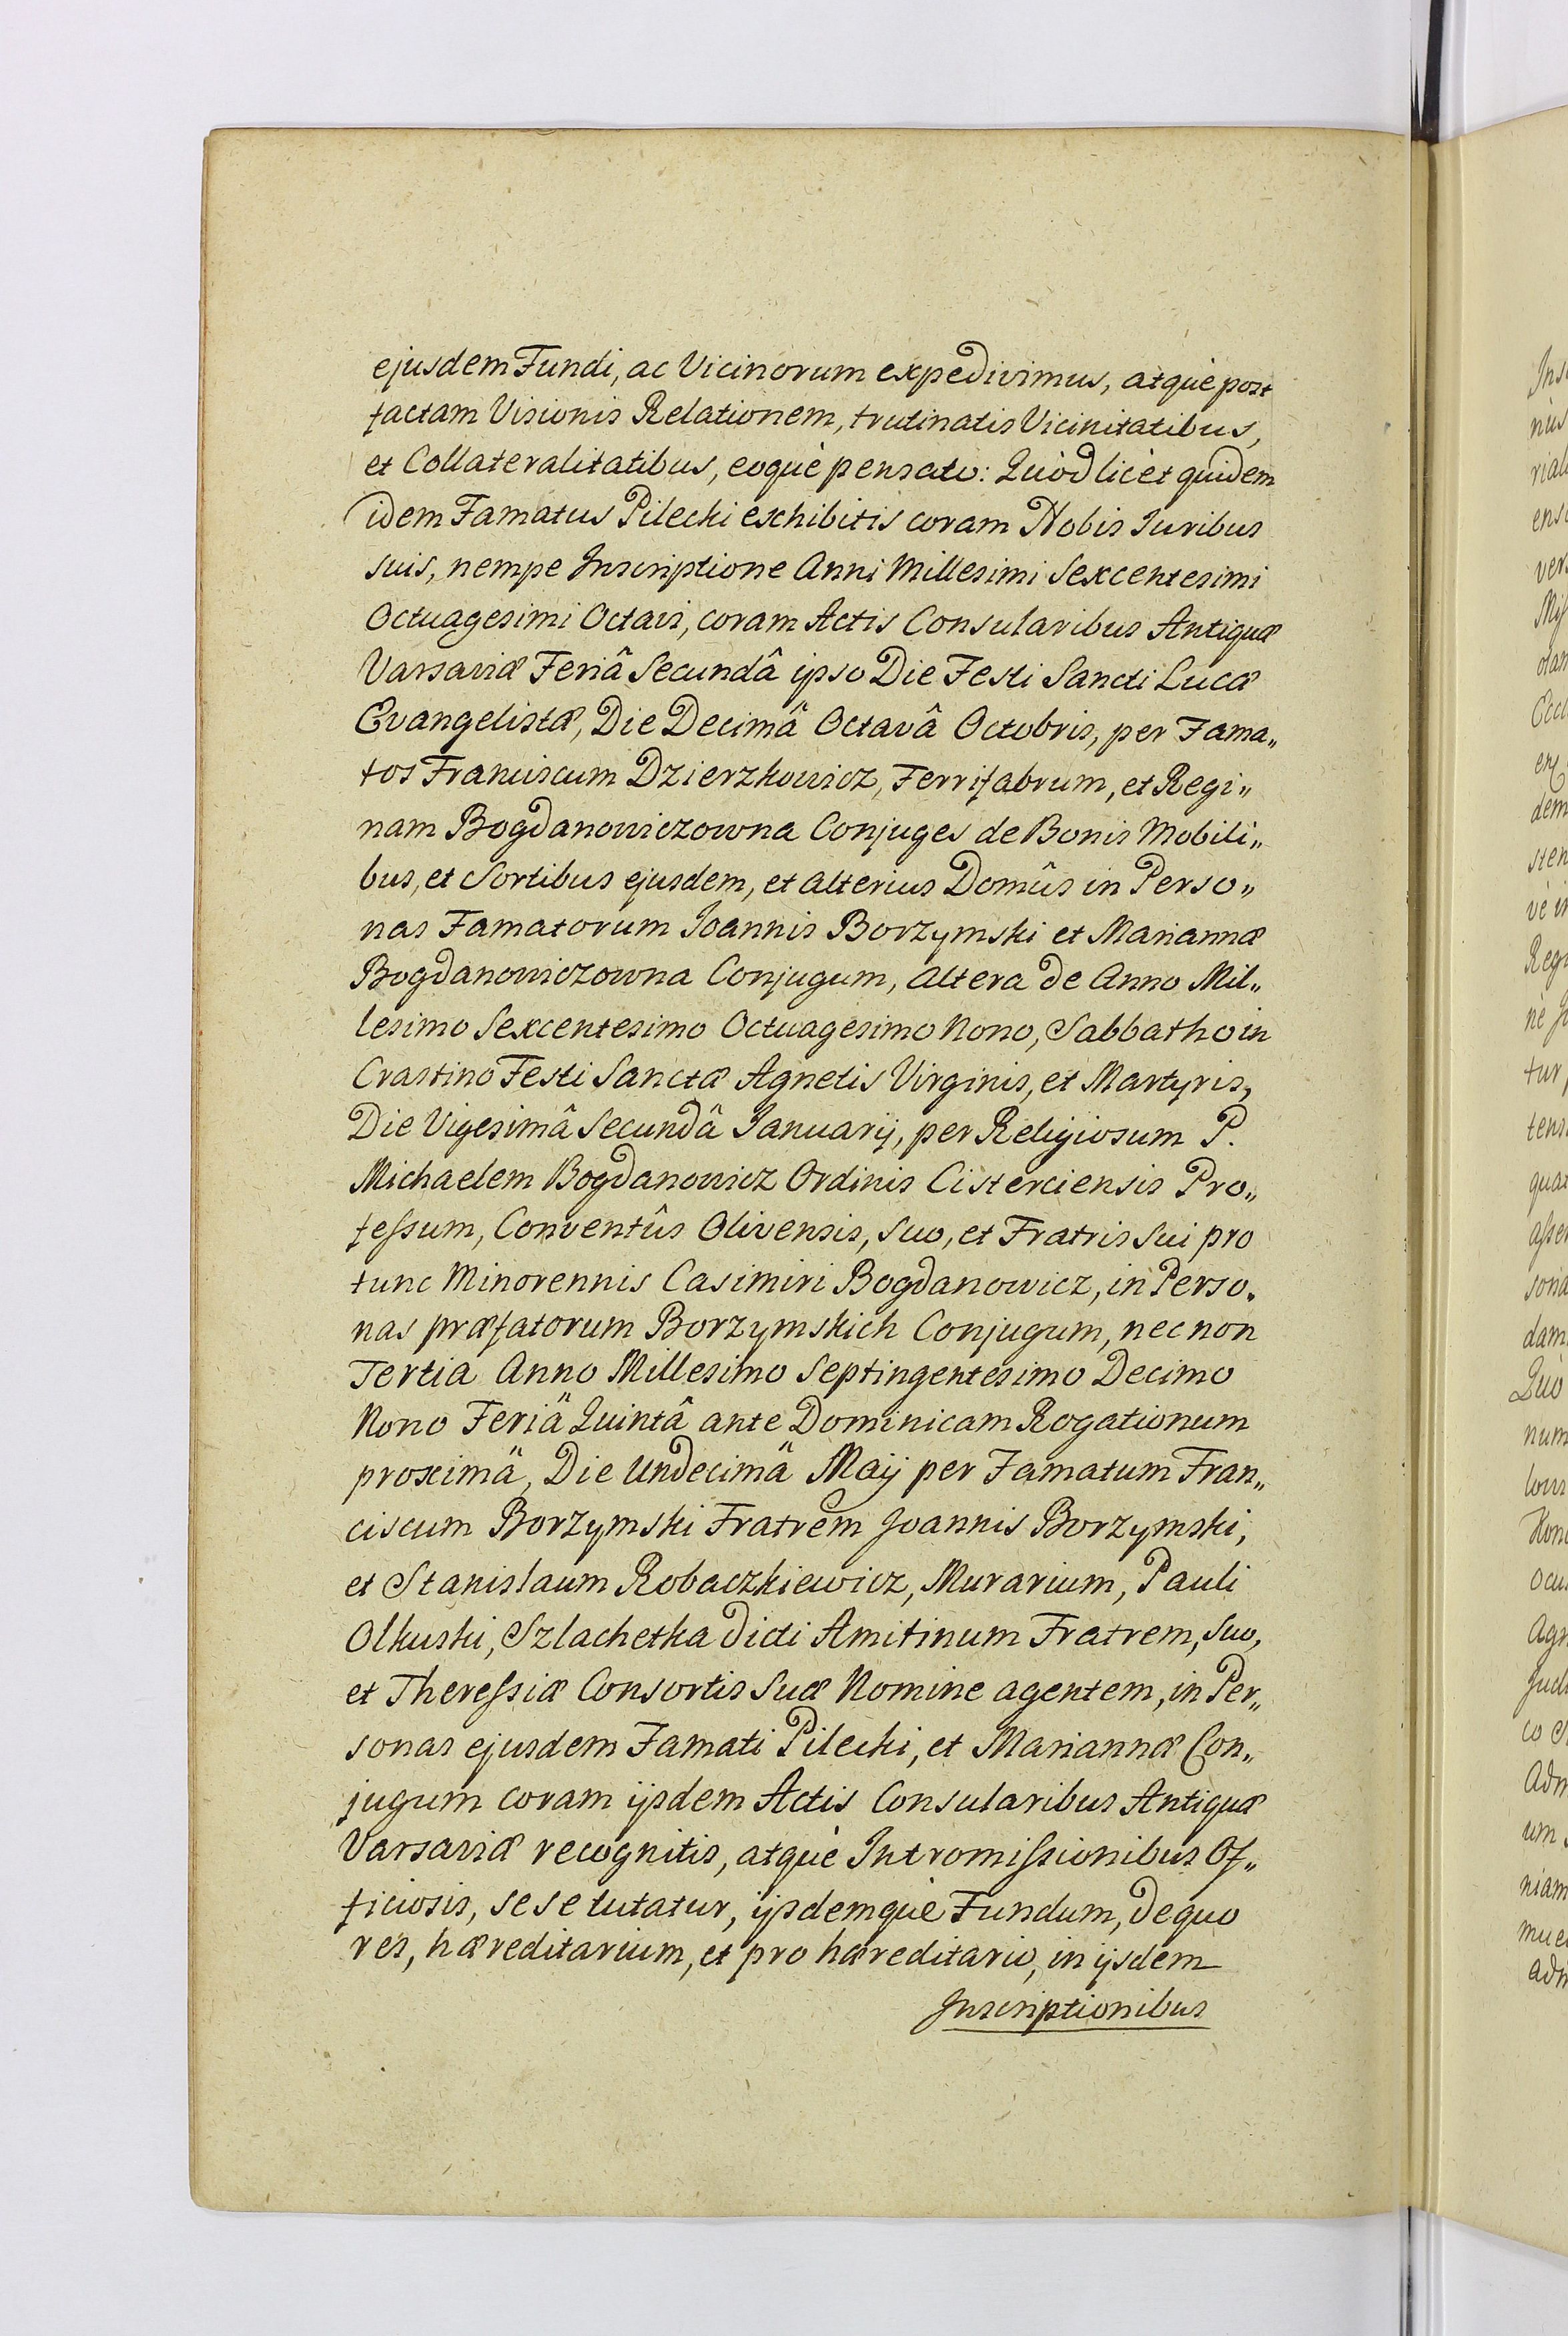 ejusdem Fundi, ac Vicinorum expedivimus, atquè post
factam Visionis Relationem, trutinatis Vicinitatibus,
et Collateralitatibus, eoquè pensato: Quòd licèt quidem
idem Famatus Pilecki exhibitis coram Nobis Juribus
suis, nempe Inscriptione Anni Millesimi Sexcentesimi
Octuagesimi Octavi, coram Actis Consularibus Antiquæ
Varsaviæ Feriâ Secundâ ipso Die Festi Sancti Lucæ
Evangelistæ, Die Decimâ Octavâ Octobris, per Fama„
tos Franciscum Dzierzkowicz, Ferrifabrum, et Regi„
nam Bogdanowiczowna Conjuges de Bonis Mobili„
bus, et Sortibus ejusdem, et alterius Domûs in Perso„
nas Famatorum Joannis Borzymski et Mariannæ
Bogdanowiczowna Conjugum, altera de Anno Mil„
lesimo Sexcentesimo Octuagesimo Nono, Sabbatho in
Crastino Festi Sanctæ Agnetis Virginis, et Martyris,
Die Vigesimâ Secundâ Januarij, per Religiosum P.
Michaelem Bogdanowicz Ordinis Cisterciensis Pro„
feſsum, Conventûs Olivensis, suo, et Fratris sui pro
tunc Minorennis Casimiri Bogdanowicz, in Perso„
nas præfatorum Borzymskich Conjugum, nec non
Tertia Anno Millesimo Septingentesimo Decimo
Nono Feriâ Quintâ ante Dominicam Rogationum
proximâ, Die Undecimâ Maij per Famatum Fran„
ciscum Borzymski Fratrem Joannis Borzymski,
et Stanislaum Robaczkiewicz, Murarium, Pauli
Olkuski, Szlachetka dicti Amitinum Fratrem, suo,
et Thereſsiæ Consortis suæ Nomine agentem, in Per„
sonas ejusdem Famati Pilecki, et Mariannæ Con„
jugum coram ijsdem Actis Consularibus Antiquæ
Varsaviæ recognitis, atquè Intromiſsionibus Of„
ficiosis, sese tutatur, ijsdemquè Fundum, de quo
res, hæreditarium, et pro hæreditario, in ijsdem
Inscriptionibus